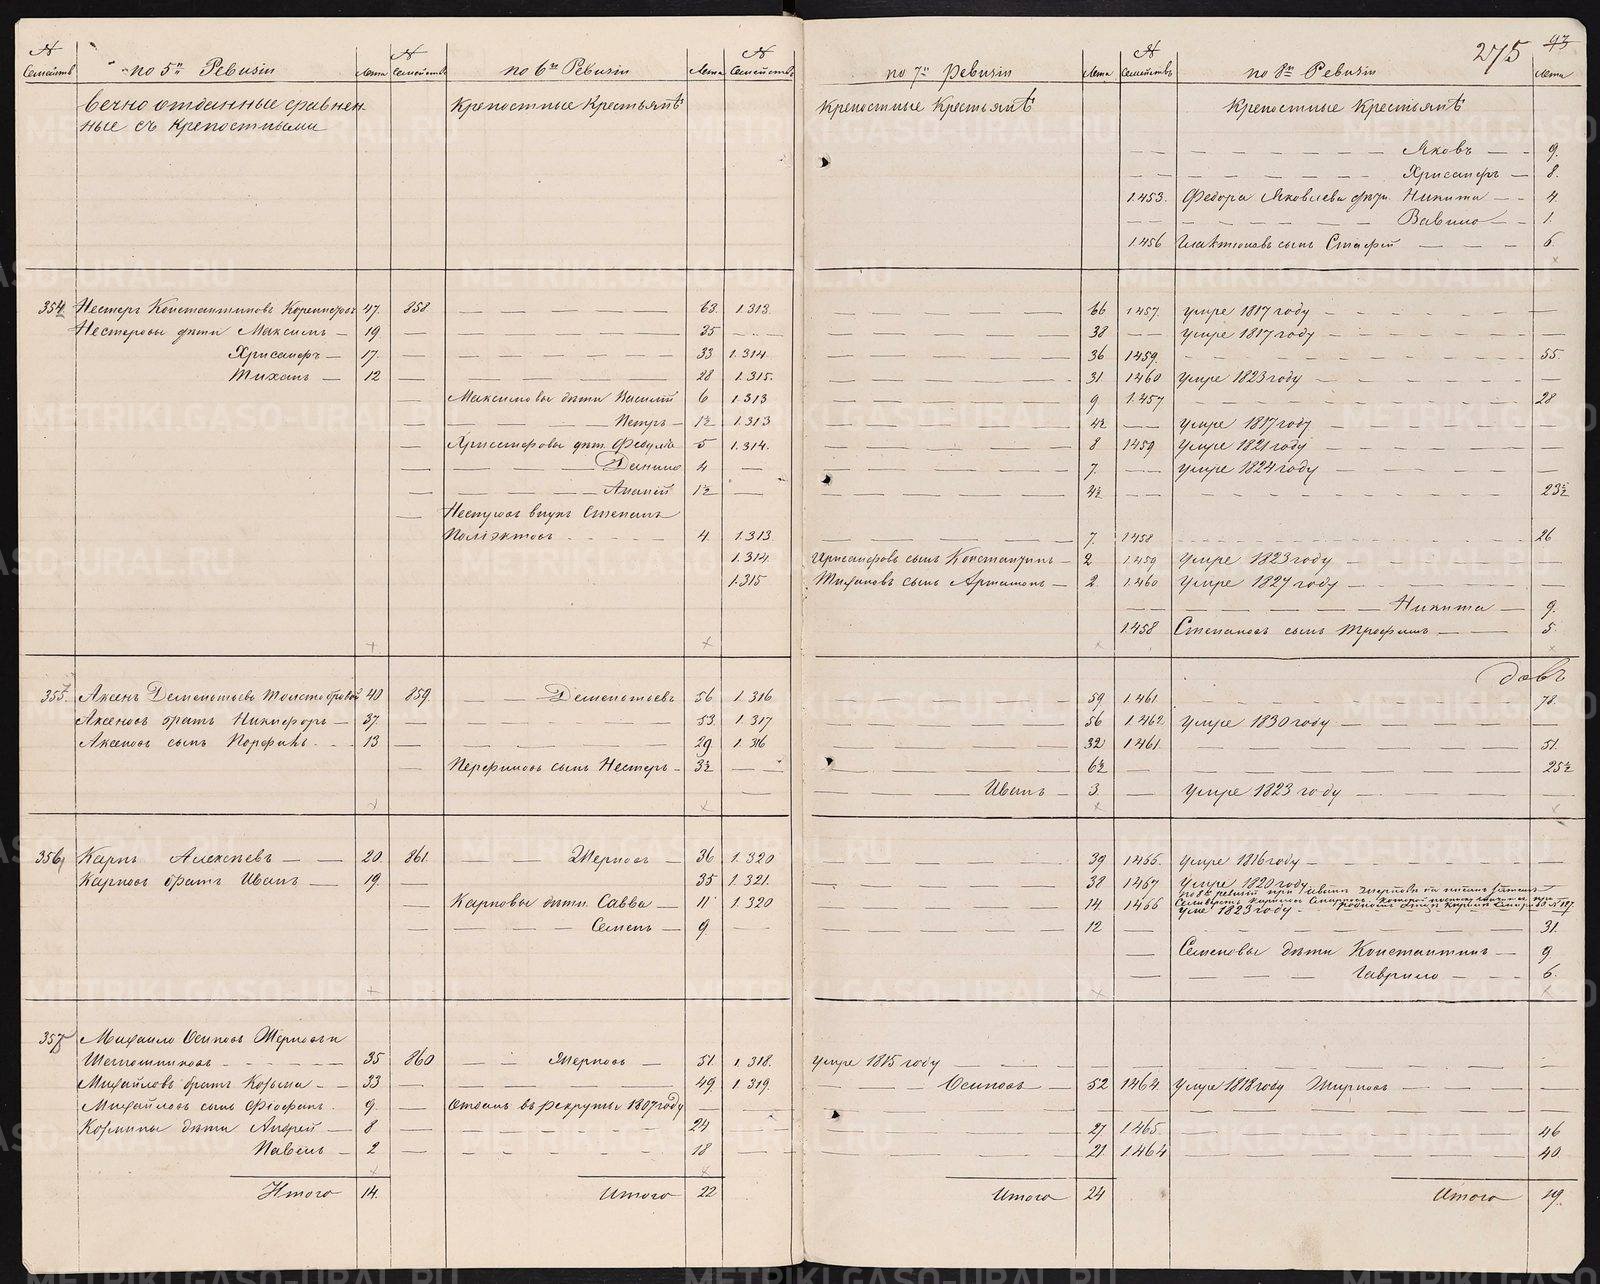 275 93
№ Семействъ по 5й Ревизіи Лета № Семействъ по 6й Ревизіи Лета № Семействъ по 7й Ревизіи Лета № Семействъ по 8й Ревизіи Лета
вечно отданные сравнен Крепостные Крестьянѣ Крепостные Крестьянѣ Крепостные Крестьянѣ
ные съ Крепостными
Яковъ 9.
Хрисанфъ 8.
1453. Федора Яковлева дѣти Никита 4.
Вавило 1.
1456 Галактионовъ сынъ Стафей 6.
354 Нестеръ Константиновъ 47. 858 63. 1.313. 66 1457. умре 1817 году
Нестеровы дети Максимъ 19 35 38 умре 1817 году
Хрисанфъ 17. 33 1.314. 36 1459. 55.
Тиханъ 12 28 1.315. 31 1460 умре 1823 году
Максимовы дѣти Василій 6 1.313 9 1.457 28
Петръ 1½ 1.313 4½ умре 1817 году
Хрисанфовы дѣти 5 1.314. 8 1459 умре 1821 году
Данило 4 7. умре 1824 году
Ананій 1½ 4½ 23½
Нестеровъ внукъ Степанъ
Поліэктовъ 4. 1.313 7. 1458 26
1.314. Хрисанфовъ сынъ Константинъ 2 1.459 умре 1823 году
1.315 Тихановъ сынъ Артамонъ 2. 1.460 умре 1827 году
Никита 9.
1.458 Степановъ сынъ Трофимъ 5.
355. Аксенъ Дементьевъ 40 859. Дементьевъ 56 1.316 59 1.461 78.
Аксеновъ братъ Никифоръ 37 53. 1.317 56 1.462 умре 1830 году
Аксеновъ сынъ Порфилъ 13 29 1.316 32 1461 51.
Перфиловъ сынъ Нестеръ 3½ 6½ 25½
Иванъ 3 умре 1823 году
356 Карпъ Алексѣевъ 20 861. Жерновъ 36 1.320 39 1466. умре 1816 году
Карповъ братъ Иванъ 19. 35 1.321. 38 1467 умре 1820 году
Карповы дѣти Савва 11 1.320 14. 1466 умре 1823 году
Семенъ 9 12 31.
Семеновы дѣти Константинъ 9
Гаврило 6.
357 Михаило Осиповъ
35 860 Жерновъ 51. 1.318. умре 1815 году
Михайловъ братъ Козьма 33 49 1.319. Осиповъ 52 1464. умре 1818 году Жирновъ
Михайловъ сынъ Фіофанъ 9. Отданъ въ рекруты 1807 году
Козмины дѣти Андрей 8 24 27 1.465. 46
Павелъ 2 18 21. 1.464 40.
Итого 14. Итого 22 Итого 24 Итого 19.
METRIKI.GASO-URAL.RU